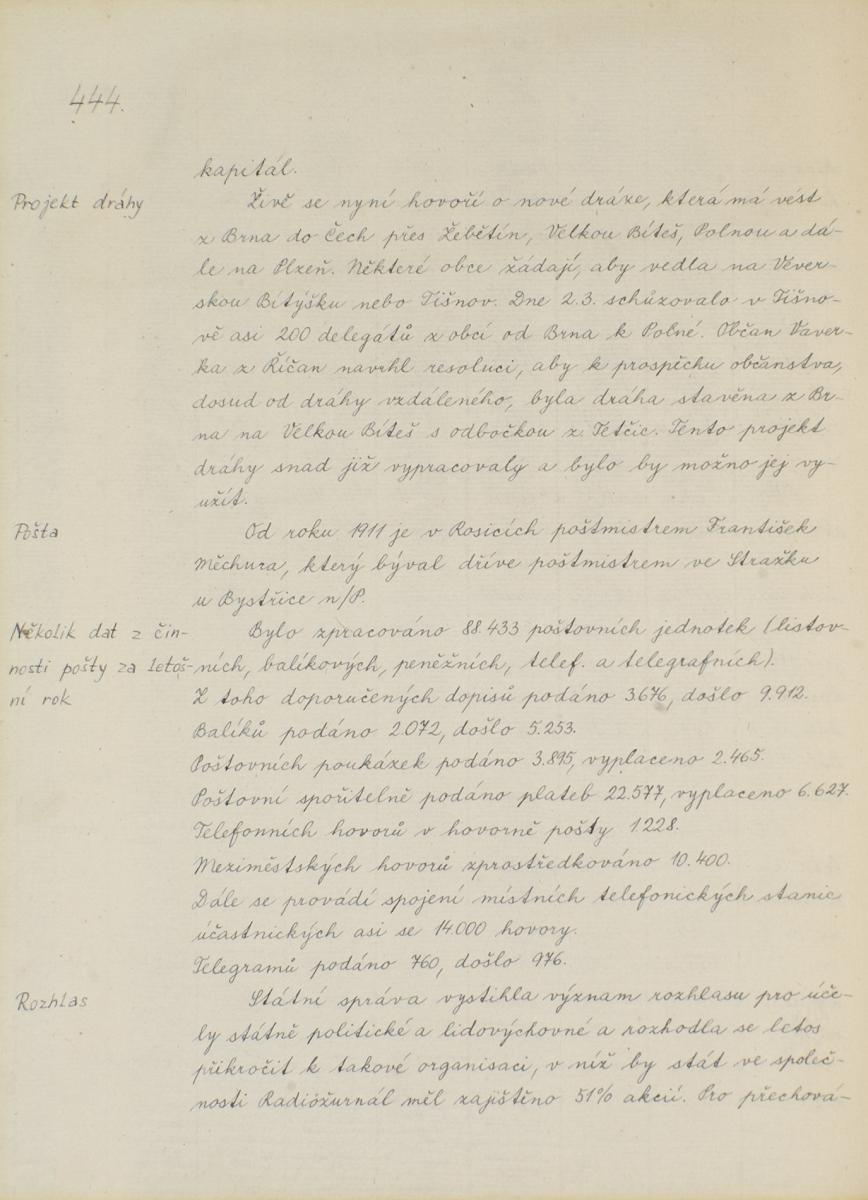 444.
kapitál.
Projekt dráhy
Živě se nyní hovoří o nové dráze, která má vést
z Brna do Čech přes Žebětín, Velkou Bíteš, Polnou a dá-
le na Plzeň. Některé obce žádají, aby vedla na Vever-
skou Bítýšku nebo Tišnov. Dne 2.3. schůzovalo v Tišno-
vě asi 200 delegátů z obcí od Brna k Polné. Občan Vaver-
ka z Říčan navrhl resoluci, aby k prospěchu občanstva,
dosud od dráhy vzdáleného, byla dráha stavěna z Br-
na na Velkou Bíteš s odbočkou z Tetčic. Tento projekt
dráhy snad již vypracovaly a bylo by možno jej vy-
užít.
Pošta
Od roku 1911 je v Rosicích poštmistrem František
Měchura, který býval dříve poštmistrem ve Stražku
u Bystřice n/P.
Několik dat z čin-
nosti pošty za letoš-
ní rok
Bylo zpracováno 88.433 poštovních jednotek (listov-
ních, balíkových, peněžních, telef. a telegrafních).
Z toho doporučených dopisů podáno 3.676, došlo 9.912.
Balíků podáno 2.072, došlo 5.253.
Poštovních poukázek podáno 3.895, vyplaceno 2.465.
Poštovní spořitelně podáno plateb 22.577, vyplaceno 6.627.
Telefonních hovorů v hovorně pošty 1228.
Meziměstských hovorů zprostředkováno 10.400.
Dále se provádí spojení místních telefonických stanic
účastnických asi se 14.000 hovory.
Telegramů podáno 760, došlo 976.
Rozhlas
Státní správa vystihla význam rozhlasu pro úče-
ly státně politické a lidovýchovné a rozhodla se letos
přikročit k takové organisaci, v níž by stát ve společ-
nosti Radiožurnál měl zajištěno 51% akcií. Pro přechová-